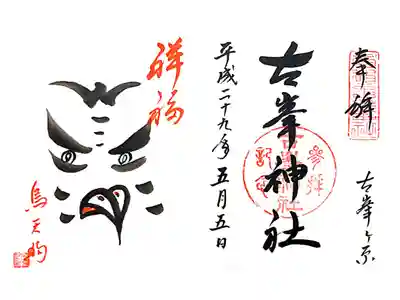 奉拝
古峯ヶ原
古峯神社
参拝
平成二十九年五月五日
祥福
烏天狗